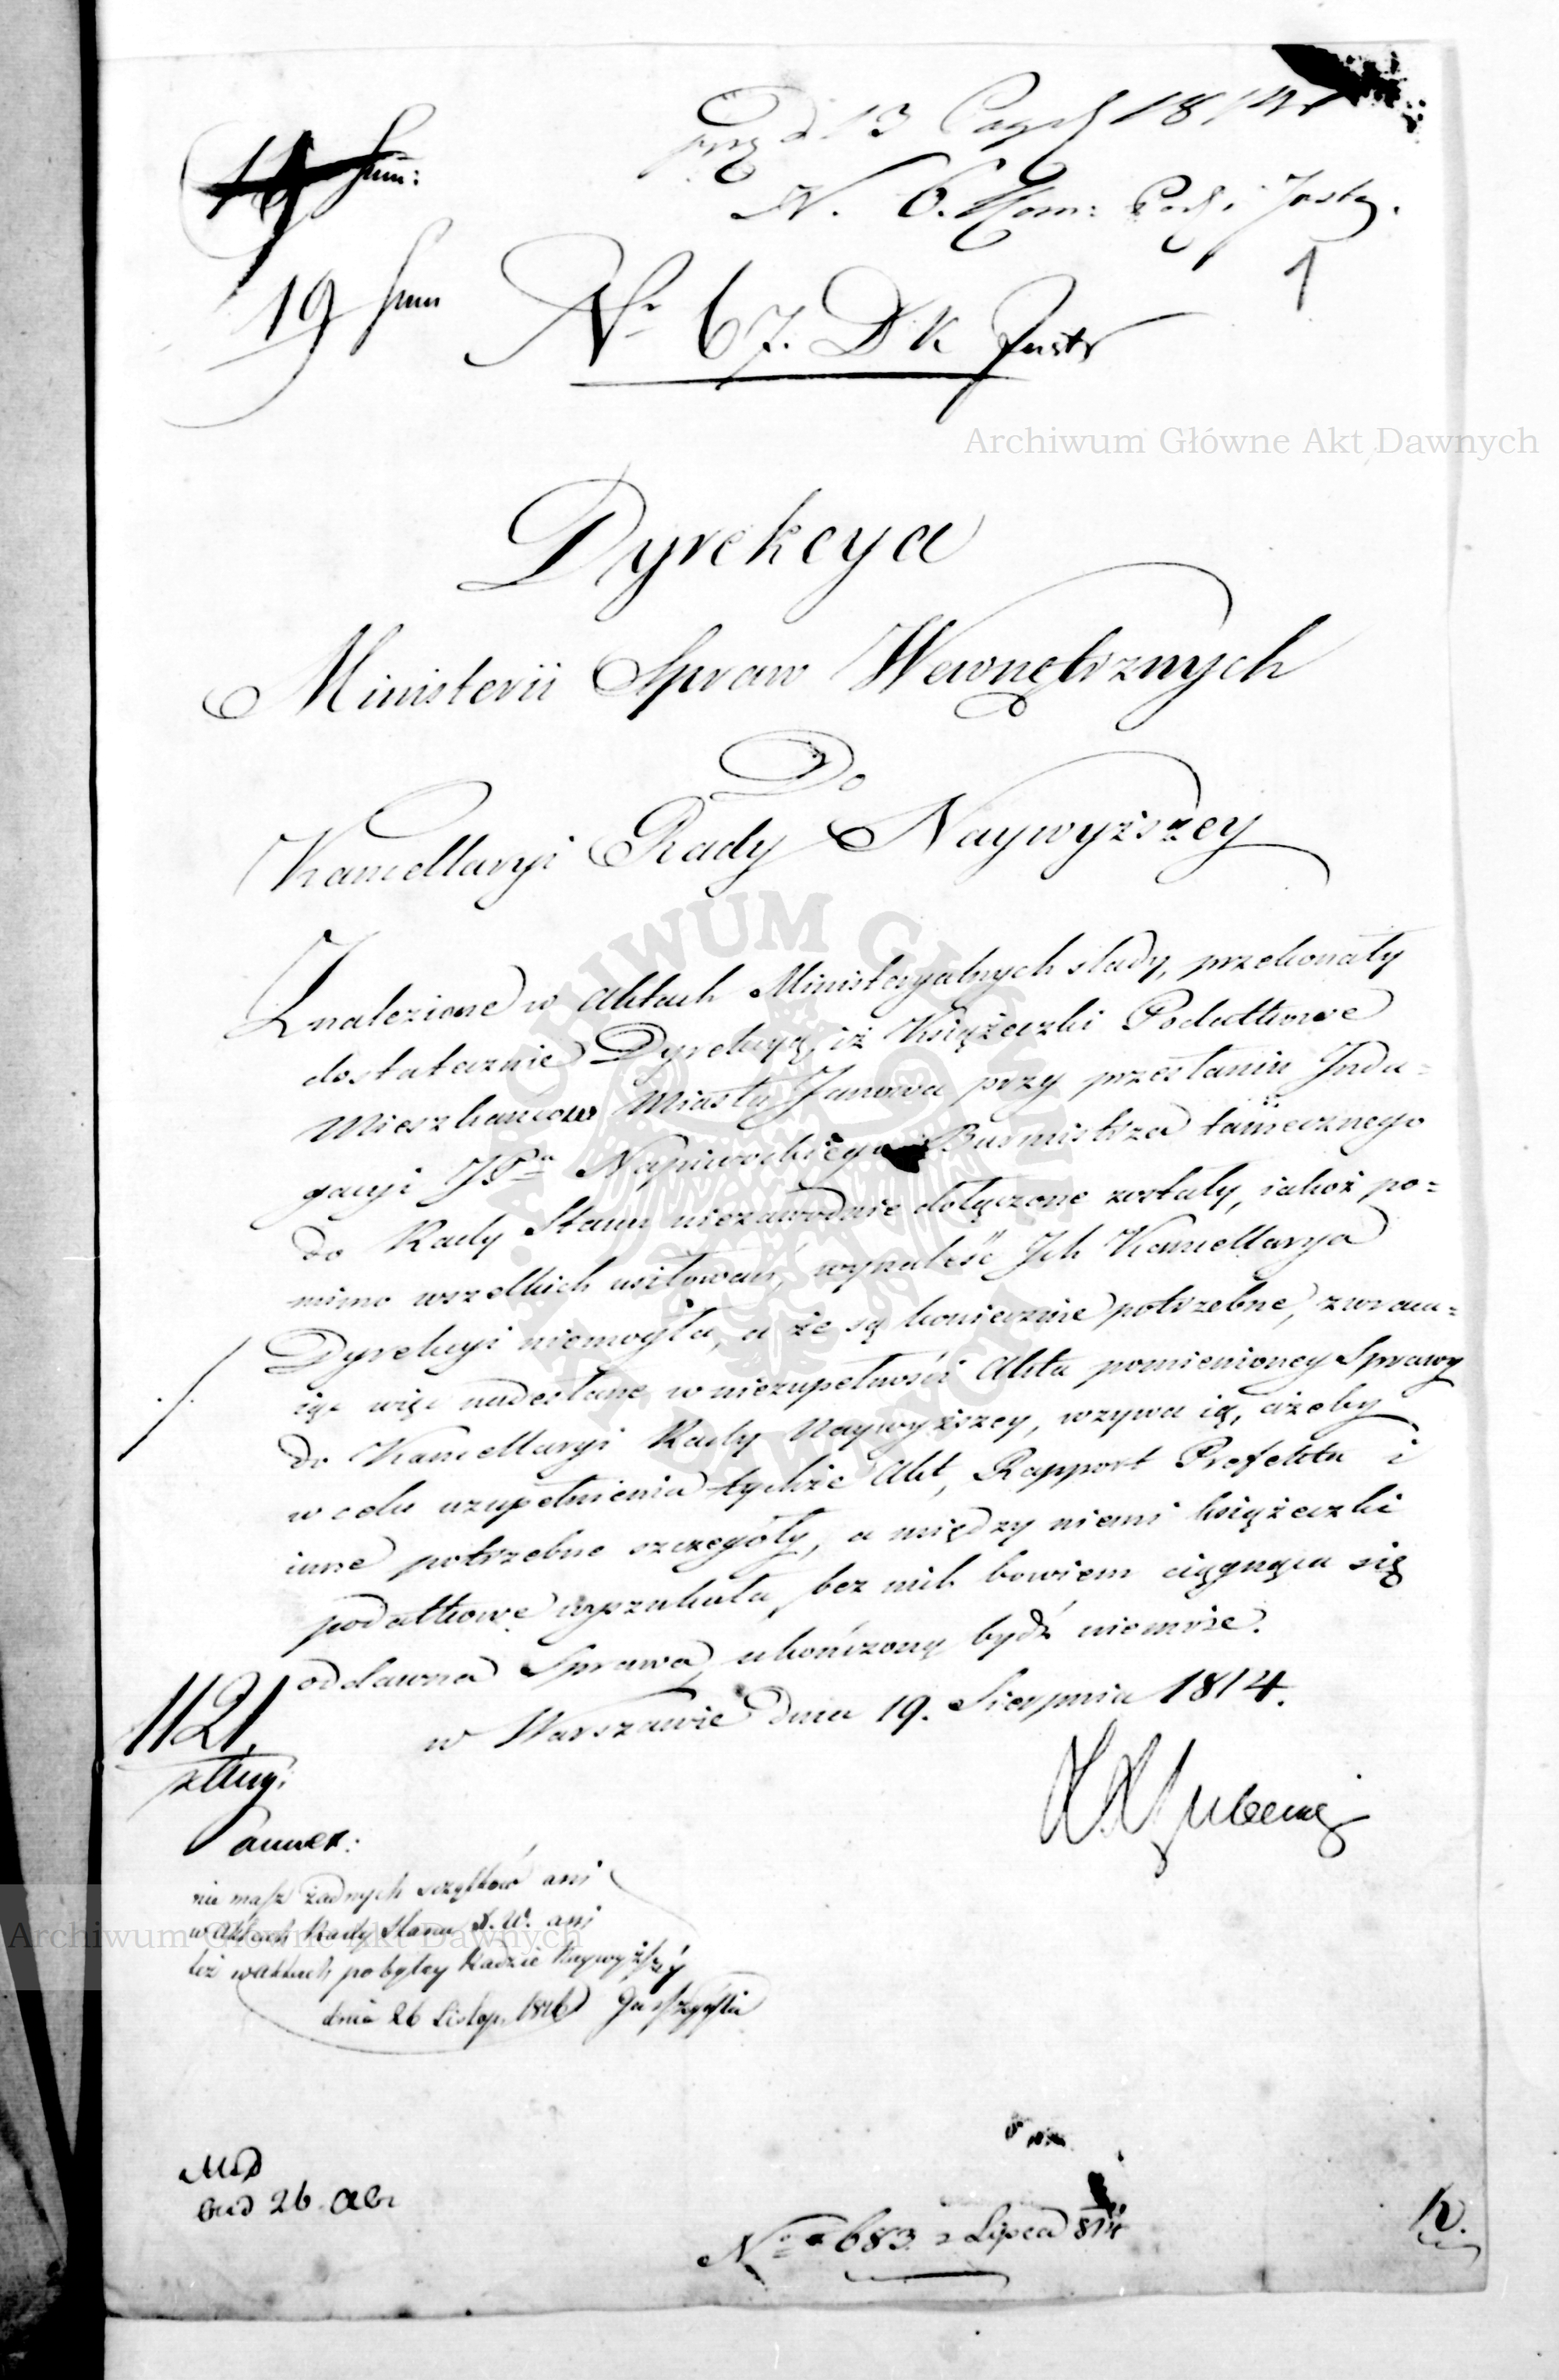 19 Sum
N. 6.
1
Nr 67. D K Justr
Archiwum Główne Akt Dawnych
Dyrekcya
Ministerii Spraw Wewnętrznych
Do
Kancellaryi Rady Naywyższey
Znalezione w Aktach Ministeryalnych slady, przekonały
dostatecznie Dyrekcyą, iż Książeczki Podatkowe
Mieszkańców Miasta Janowa przy przesłaniu Inda=
gacyi JPa Napiwockiego Burmistrza tamecznego
do Rady Stanu niezawodnie dołączone zostały, iakoż po=
mimo wszelkich usiłowań, wynaleść Ich Kancellarya
Dyrekcyi niemogła, a że są koniecznie potrzebne, zwraca=
iąc więc nadesłane w niezupełności Akta pomienioney Sprawy
do Kancellaryi Rady Naywyższey, wzywa ią, ażeby
w celu uzupełnienia tychże Akt, Rapport Prefekta i
inne potrzebne szczegóły, a między niemi książeczki
podatkowe wyszukała, bez nich bowiem ciągnąca się
oddawna Sprawa, ukończoną bydź niemoże.
w Warszawie dnia 19. Sierpnia 1814.
1121.
nie masz żadnych szczątków ani
w Aktach Rady Stanu X. W. ani
też w aktach po byłey Radzie Naywyższéy
dnia 26 Listop. 1816
Archiwum Główne Akt Dawnych
26
No 683 z Lipca 814